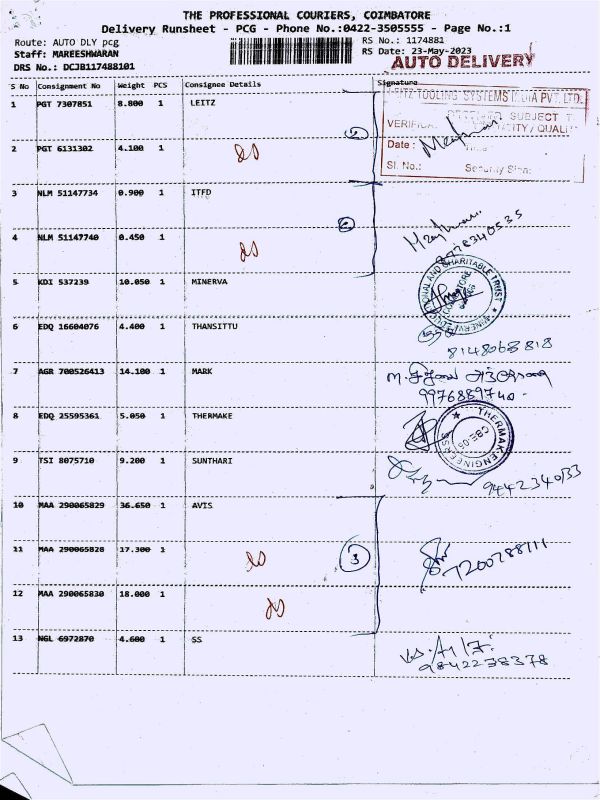 THE PROFESSIONAL COURIERS, COIMBATORE
Delivery Runsheet - PCG - Phone No.:0422-3505555 - Page No.:1
Route: AUTO DLY pcg RS No.: 1174881
Staff: MAREESHWARAN RS Date: 23-May-2023
DRS No.: DCJB117488101 AUTO DELIVERY
S No Consignment No Weight PCS Consignee Details Signature
LEITZ TOOLING SYSTEMS INDIA PVT. LTD.
1 PGT 7307851 8.800 1 LEITZ
SUBJECT
Date :
2 PGT 6131302 4.100 1
Sl. No.: Security Sign:
3 NLM 51147734 0.900 1 ITFD
4 NLM 51147740 0.450 1
5 KDI 537239 10.050 1 MINERVA
6 EDQ 16604076 4.400 1 THANSITTU
8148063818
7 AGR 700526413 14.100 1 MARK
8 EDQ 25595361 5.050 1 THERMAKE
9 TSI 8075710 9.200 1 SUNTHARI
9442340133
10 MAA 290065829 36.650 1 AVIS
11 MAA 290065828 17.300 1
3
7200788111
12 MAA 290065830 18.000 1
13 NGL 6972870 4.600 1 SS
9842238378